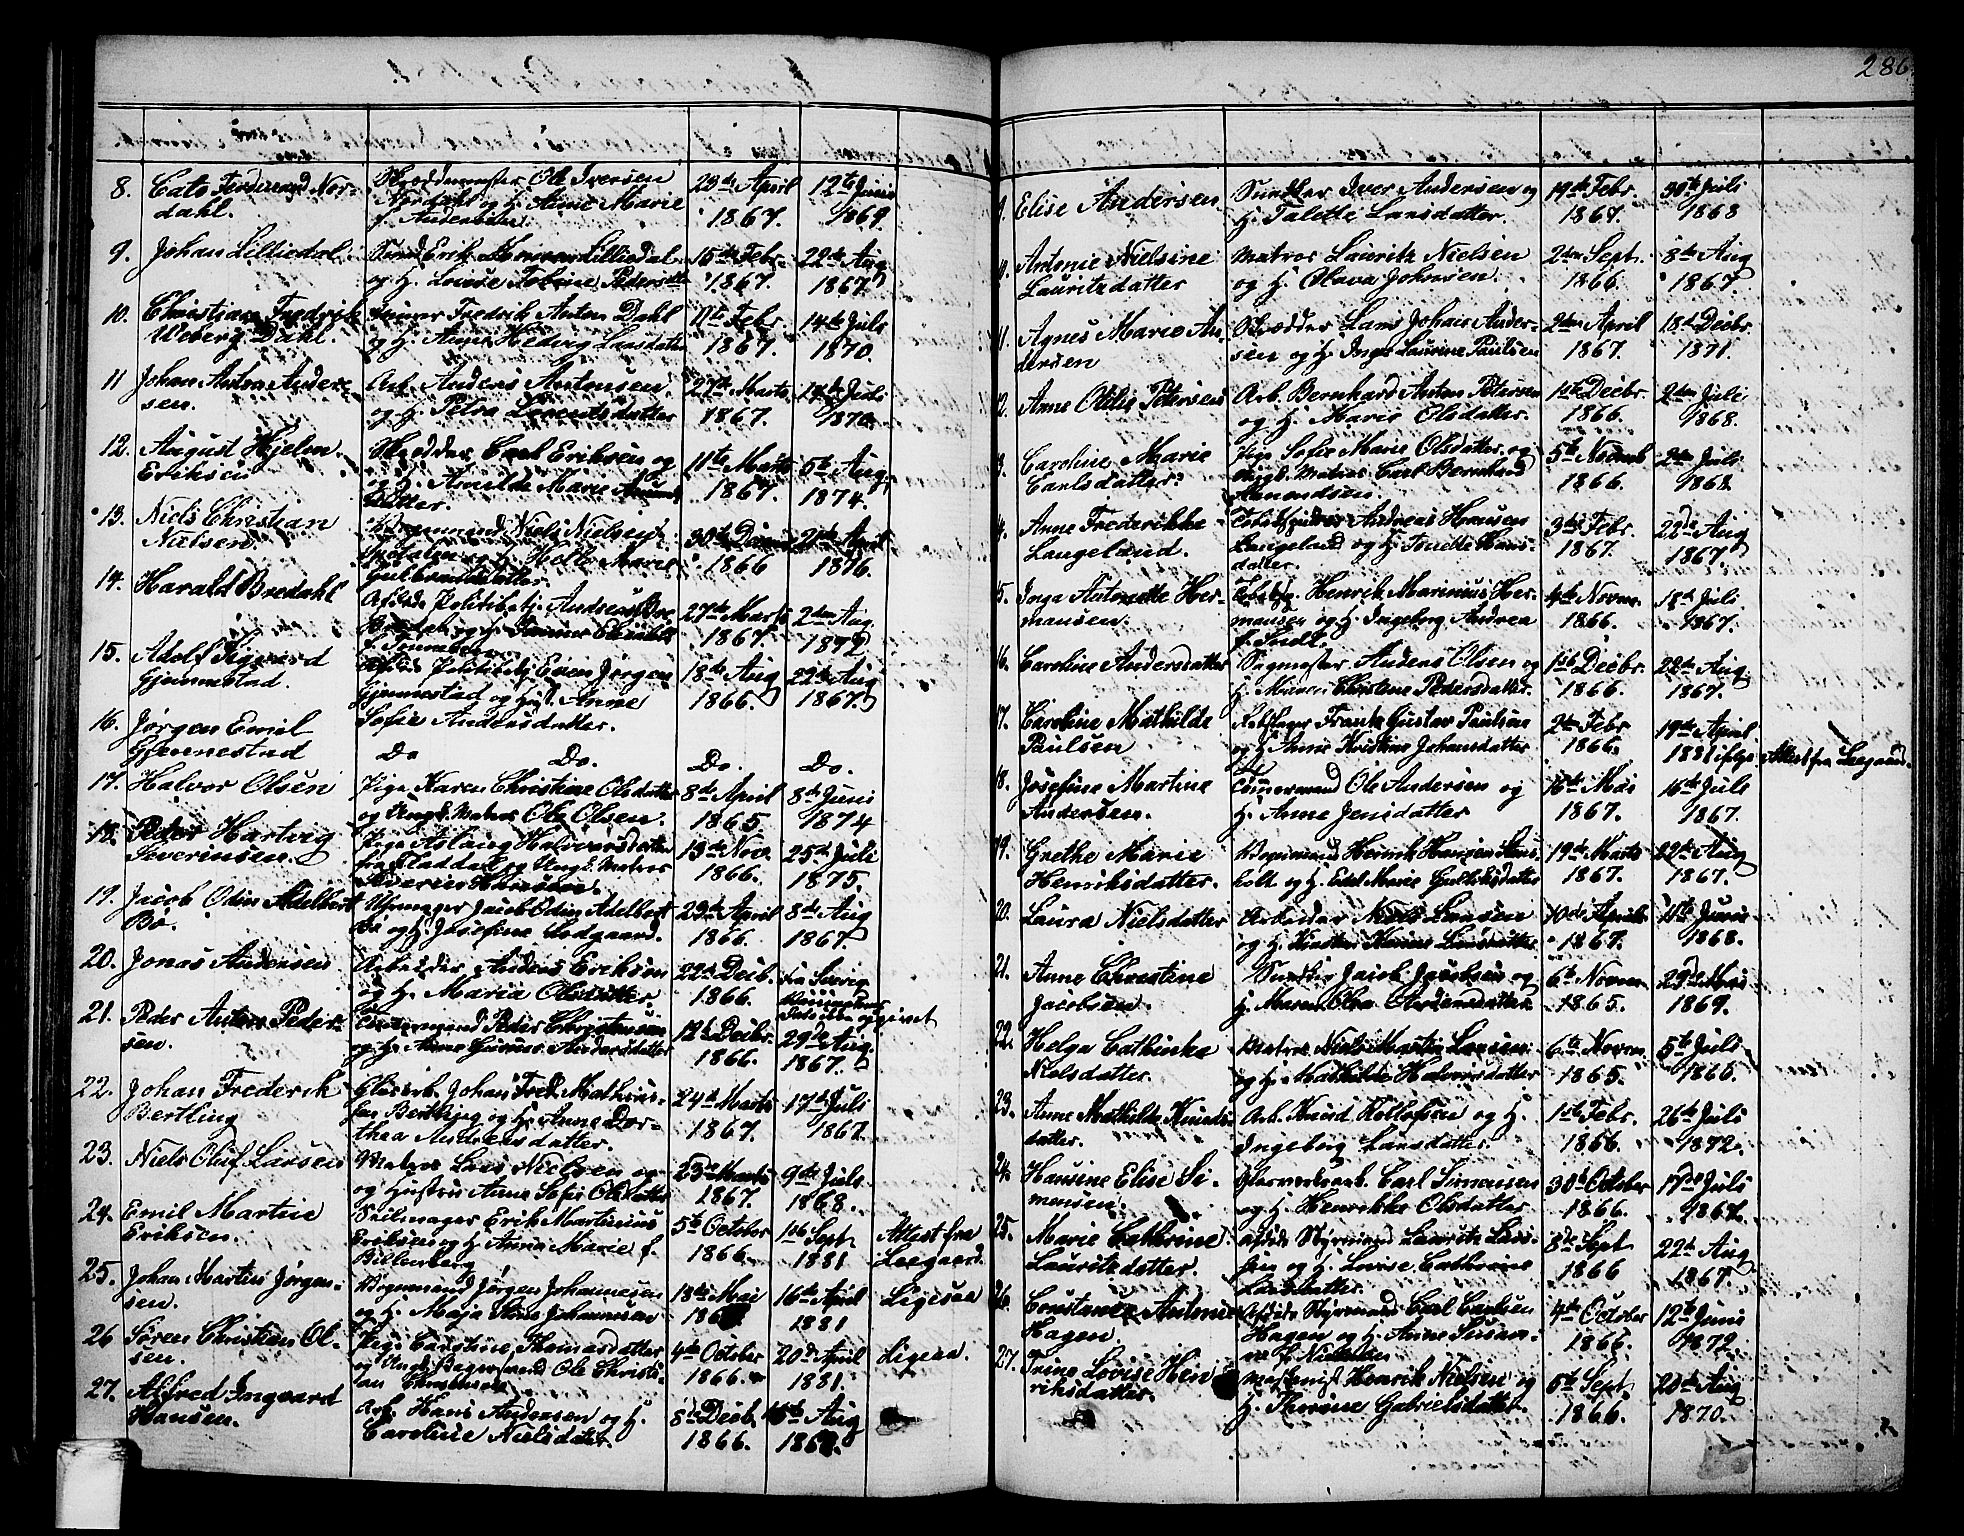 286
8. Cato Ferdinand Nor-
dahl.
Skræddermester Ole Iversen
Nordahl og H. Anne Marie
f. Andersen
23de April
1867.
12te Juni
1869.
9. Johan Lilliedal.
og H. Lovise
15de Febr.
1867.
22de Aug
1867.
10. Christian Fredrik
Weberg Dahl.
Fredrik Anton Dahl
og H. Anne Hedvig Larsdatter
11te Febr.
1867.
14de Juli
1870.
11 Johan Anton Ander-
sen.
Arb. Anders Antonsen
og H. Petra Lorentsdatter
27de Marts
1867.
14de Juli
1870.
12. August Hjelm
Eriksen
Skrædder Carl Eriksen og
og H. Amilde Marie Amunds-
datter.
11te Marts
1867.
5te Aug.
1874.
13. Niels Christian
Nielsen.
Niels Nielsen
og H. Helle Marie
Gulbrandsdatter.
30te Decem
1866
21de April
1876.
14. Harald Bredahl
Afdøde Politibetj. Andreas Bre-
27de Marts
1867.
2den Aug.
1872
15. Adolf Sigvard
Gjennestad.
Afdøde Politibetj. Even Jørgen
Gjennestad og Hust. Anne
Sofie Andersdatter.
18de Aug
1866.
22de Aug
1867.
16. Jørgen Emil
Gjennestad
Do Do. Do. Do.
17. Halvor Olsen
Pige Karen Christine Olsdatter
og Ungk. Matros Ole Olsen.
8de April
1865
8de Juni
1874
18. Peder Hartvig
Severinsen.
Pige Aslaug Halvorsdatter
fra Fladdal og Ungk. Matros
Severin Hansen.
13de Nov.
1866.
25de Juli
1875.
19. Jacob Odin Adelbert
Bø.
Uhrmager Jacob Odin Adelbert
Bø og H. Josefine Aadgaard.
23de April
1866.
8de Aug
1867.
20. Jonas Andersen
Arbeider Anders Eriksen
og H. Maria Olsdatter.
22de Decb.
1866.
fra Sverig
21. Peder Anton Peder-
sen.
Tømmermand Peder Christensen
og H. Anne Gurine Andersdatter
12te Decbr.
1866.
29de Aug.
1867.
22. Johan Frederik
Bertling
Glasverk. Johan Fred. Mathias-
sen Bertling og H. Anne Dor-
thea Andreasdatter.
24de Marts
1867.
17de Juli
1867.
23. Niels Oluf Larsen
Matros Lars Nielsen og
og Hustru Anne Sofie Olsdatter
23de Marts
1867.
9de Juli
1868.
24. Emil Martin
Eriksen.
Seilmager Erik Martinius
Eriksen og H. Anna Marie f.
Billenberg
5te October
1866.
1ste Sept.
1881
Attest fra
Leegaard.
25. Johan Martin Jørgen-
sen.
Brynmand Jørgen Johannesen
og H. Maja Stine Johannesen
13de Mai
16de April
1881
Ligesaa
26 Søren Christian Ol-
sen.
Pige Caroline Thomasdatter
og Ungk. Bagersvend Ole Christi-
an Christensen
4de October
1866.
20de April
1881.
Ligesaa.
27. Alfred Ingvard
Hansen.
Arb. Hans Andersen og H.
Caroline Nielsdatter.
8de Decb.
1866.
Aug
9. Elise Andersen
Iver Andersen og
H. Talette Larsdatter.
19de Febr.
1867.
30te Juli
1868
10. Antonie Nielsine
Lauritzdatter
Matros Lauritz Nielsen
og H. Olava Johnsen.
2den Sept.
1866.
8de Aug
1867
11. Agnes Marie An-
dersen
Skrædder Lars Johan Ander-
sen og H. Inger Laurine Paulsen
2den April
1867.
18de Decbr.
1871.
12. Anne Otilie Petersen
Arb. Bernhard Anton Petersen
og H. Marie Olsdatter.
1ste Decbr.
1866.
2den Juli
1868.
13. Caroline Marie
Carlsdatter
Pige Sofie Marie Olsdatter og
Ungk. Matros Carl Bernhard
Amondsen.
5te Novemb
1866.
2den Juli
1868.
14. Anne Frederikke
Langeland.
Andreas Hansen
Langeland og H. Tonette Hans-
datter.
3die Febr.
1867.
22de Aug
1867.
15. Inga Antonette Her-
mansen.
Henrik Marinius Her-
mansen og H. Ingeborg Andrea
4de Novem.
1866.
18de Juli
1867.
16. Caroline Andersdatter
Sagmester Anders Olsen og
H. Maren Christene Pedersdatter.
1ste Decbr.
1866.
22de Aug
1867.
17. Caroline Mathilde
Paulsen
Frantz Gustav Paulsen
og H. Anne Kristine Johansdatter
2den Febr.
1866.
19de April
1881 ifølge Attest fra Leegaard.
18. Josefine Martine
Andersen.
Tømmermand Ole Andersen og
H. Anne Jensdatter
16de Mai
1867.
16de Juli
1867.
19. Grethe Marie
Henriksdatter.
Henrik Hansen
holt og H. Edel Marie Gulliksdatter
19de Marts
1867.
22de Aug
1867.
20. Laura Nielsdatter
Arbeider Niels Larsen
og H. Kirsten Karine Larsdatter
10de April
1867.
11te Juni
1868.
21. Anne Christine
Jacobsen.
Jacob Jacobsen og
H. Maren Olea
6te Novem.
1865.
29de Mai
1869.
22. Helga Cathinka
Nielsdatter.
Matros Niels Martin Larsen
og H. Mathilde Halvorsdatter
6te Novem.
1865.
5te Juli
1866.
23. Anne Mathilde Knuds-
datter.
Arb. Knud Kolloffsen og H.
Ingeborg Larsdatter.
1ste Febr.
1866.
26de Juli
1872.
24. Hansine Elise Si-
monsen.
Glasverksarb. Carl Simonsen
og H. Henrikke Olsdatter.
30te October
1866.
17de Juli
1867.
25. Marie Cathrine
Lauritzdatter.
Afdøde Styrmand Lauritz Lar-
sen og H. Lovise Cathrine
Larsdatter.
8de Sept
1866
22de Aug
1867.
26. Constance Antonie
Hagen.
Afdøde Styrmand Carl Carlsen
Hagen og H. Anne Susan-
ne f. Nielsen
4de October
1866.
12te Juni
1872.
27. Trine Lovise Hen-
riksdatter.
Maskinist Henrik Nielsen og
H. Thorine Gabrielsdatter.
5te Sept.
1866.
20de Aug
1870.